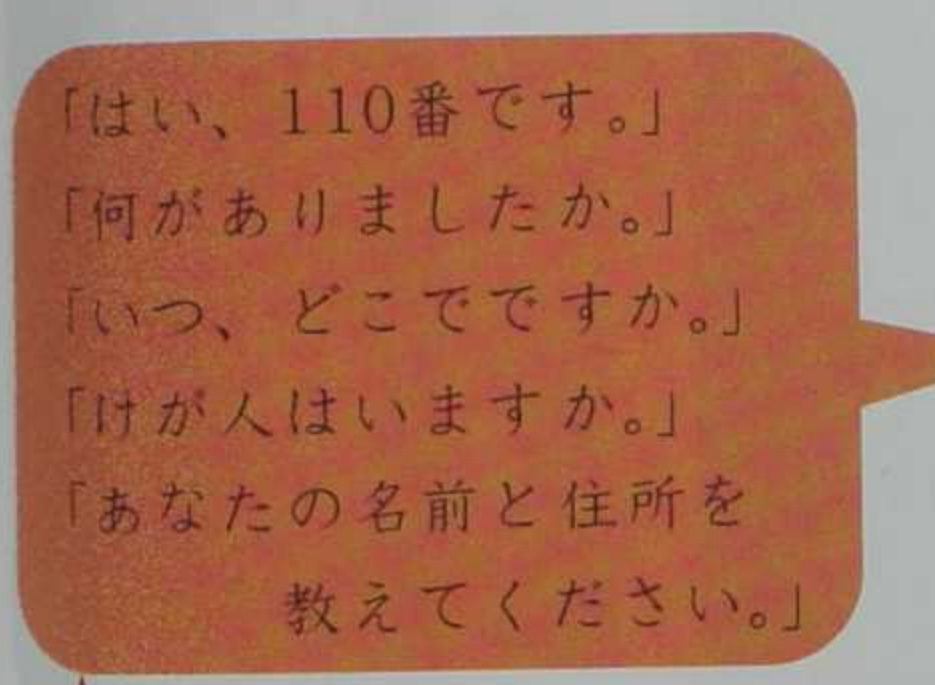 「はい、110番です。」
「何がありましたか。」
「いつ、どこでですか。」
「けが人はいますか。」
「あなたの名前と住所を
教えてください。」